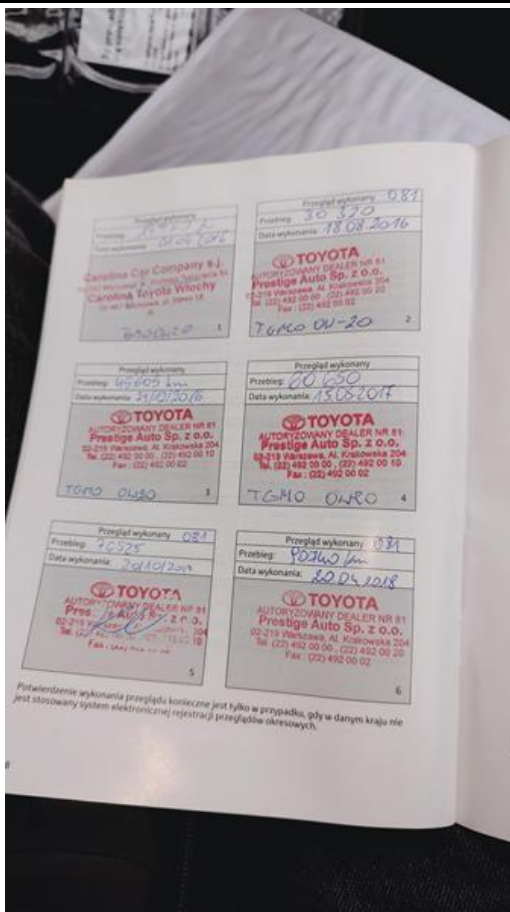 Przegląd wykonany
Przebieg:
Data wykonania: 01.04.2016
Carolina Car Company s.j.
Carolina Toyota Włochy
1
Przegląd wykonany 081
Przebieg: 30 320
Data wykonania: 18.08.2016
TOYOTA
AUTORYZOWANY DEALER NR 81
Prestige Auto Sp. z o.o.
02-219 Warszawa, Al. Krakowska 204
Tel. (22) 492 00 00, (22) 492 00 20
Fax: (22) 492 00 02
TGMO 0W-20
2
Przegląd wykonany
Przebieg: 45605 km
Data wykonania:
TOYOTA
AUTORYZOWANY DEALER NR 81
Prestige Auto Sp. z o.o.
02-219 Warszawa, Al. Krakowska 204
Tel. (22) 492 00 00, (22) 492 00 10
Fax: (22) 492 00 02
TGMO 0W20
3
Przegląd wykonany
Przebieg: 60 650
Data wykonania: 15.05.2017
TOYOTA
AUTORYZOWANY DEALER NR 81
Prestige Auto Sp. z o.o.
02-219 Warszawa, Al. Krakowska 204
Tel. (22) 492 00 00, (22) 492 00 10
Fax: (22) 492 00 02
TGMO 0W20
4
Przegląd wykonany 081
Przebieg: 70525
Data wykonania: 20/10/2017
TOYOTA
AUTORYZOWANY DEALER NR 81
5
Przegląd wykonany 081
Przebieg: 90740 km
Data wykonania: 20.04.2018
TOYOTA
AUTORYZOWANY DEALER NR 81
Prestige Auto Sp. z o.o.
02-219 Warszawa, Al. Krakowska 204
Tel. (22) 492 00 00, (22) 492 00 20
Fax: (22) 492 00 02
6
Potwierdzenie wykonania przeglądu konieczne jest tylko w przypadku, gdy w danym kraju nie
jest stosowany system elektronicznej rejestracji przeglądów okresowych.